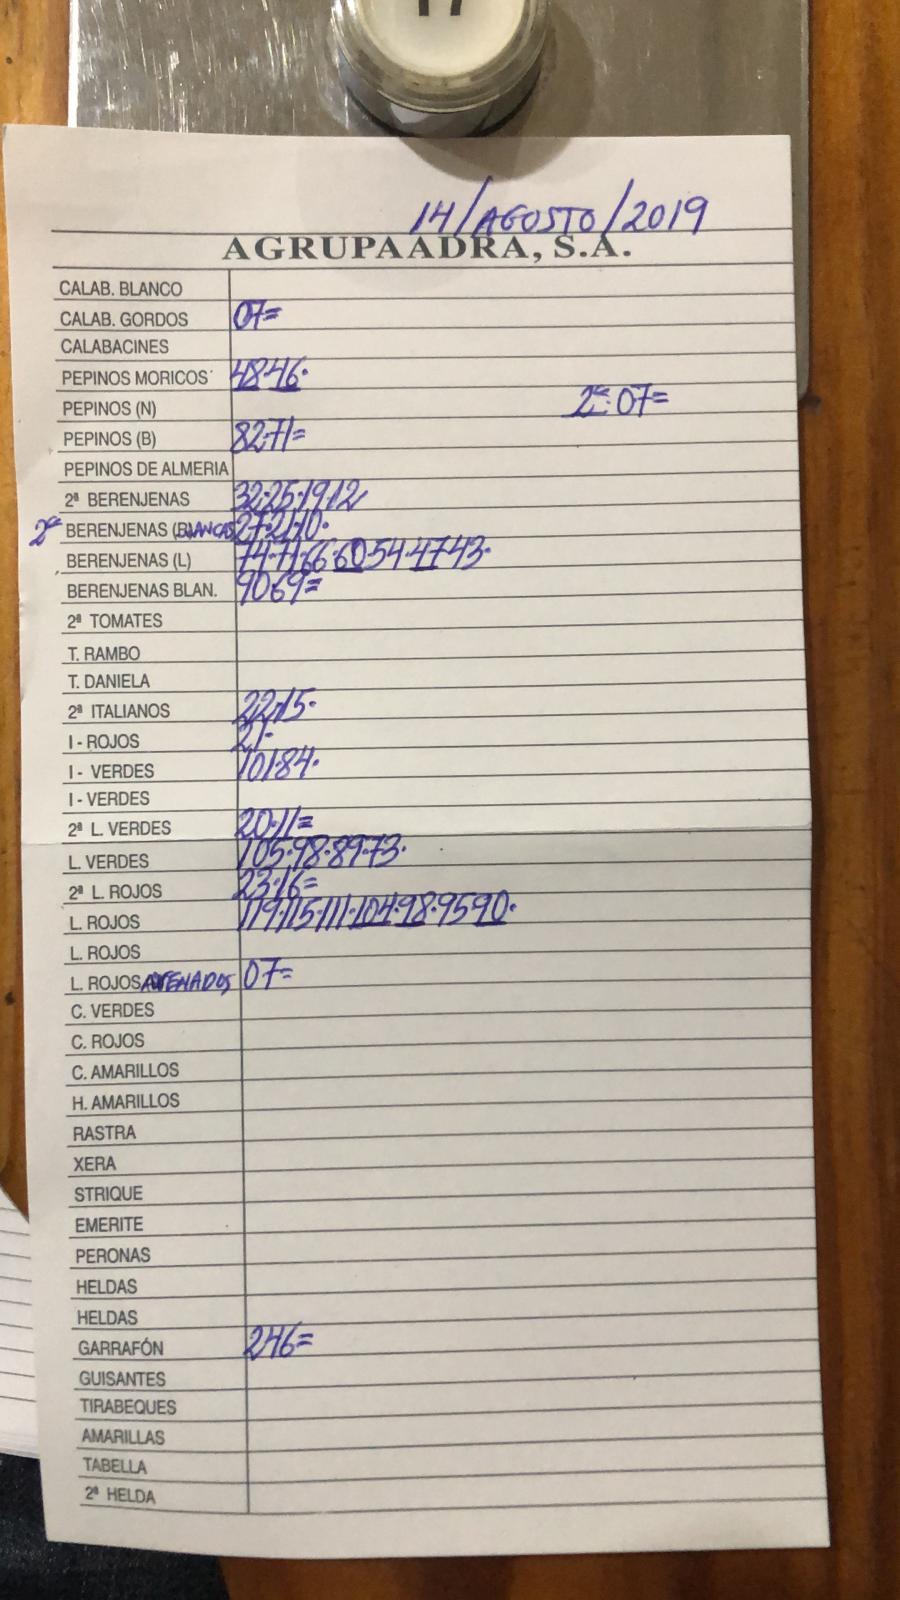 17
14/AGOSTO/2019
AGRUPAADRA, S.A.
CALAB. BLANCO
CALAB. GORDOS 07=
CALABACINES
PEPINOS MORICOS 48·46·
PEPINOS (N) 2ª: 07=
PEPINOS (B) 82·71=
PEPINOS DE ALMERIA
2ª BERENJENAS 32·25·19·12
2ª BERENJENAS (BLANCAS 27·21·10·
BERENJENAS (L) 74·71·66·60·54·47·43·
BERENJENAS BLAN. 90·69=
2ª TOMATES
T. RAMBO
T. DANIELA
2ª ITALIANOS 22·15·
I - ROJOS 21·
I - VERDES 101·84·
I - VERDES
2ª L. VERDES 20·11=
L. VERDES 105·98·89·73·
2ª L. ROJOS 23·16=
L. ROJOS 119·115·111·104·98·95·90·
L. ROJOS
L. ROJOS 07=
C. VERDES
C. ROJOS
C. AMARILLOS
H. AMARILLOS
RASTRA
XERA
STRIQUE
EMERITE
PERONAS
HELDAS
HELDAS
GARRAFÓN 246=
GUISANTES
TIRABEQUES
AMARILLAS
TABELLA
2ª HELDA